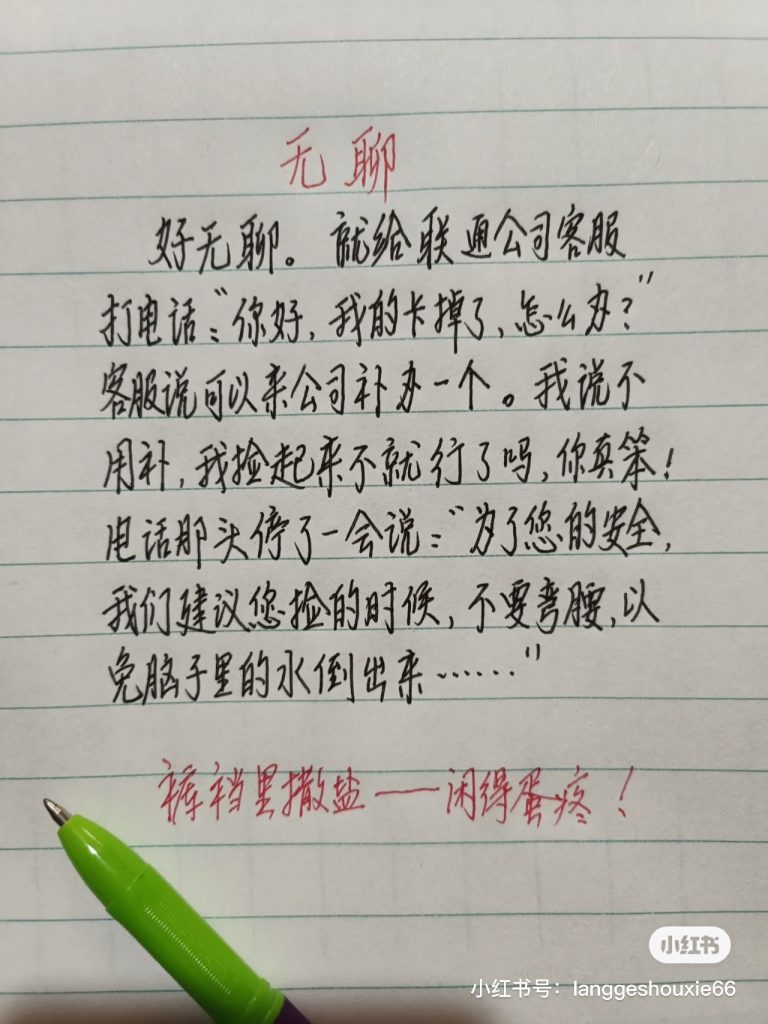 无聊
好无聊。就给联通公司客服
打电话:“你好,我的卡掉了,怎么办?”
客服说可以来公司补办一个。我说不
用补,我捡起来不就行了吗,你真笨!
电话那头停了一会说:“为了您的安全,
我们建议您捡的时候,不要弯腰,以
免脑子里的水倒出来……”
裤裆里撒盐——闲得蛋疼!
小红书
小红书号:langgeshouxie66